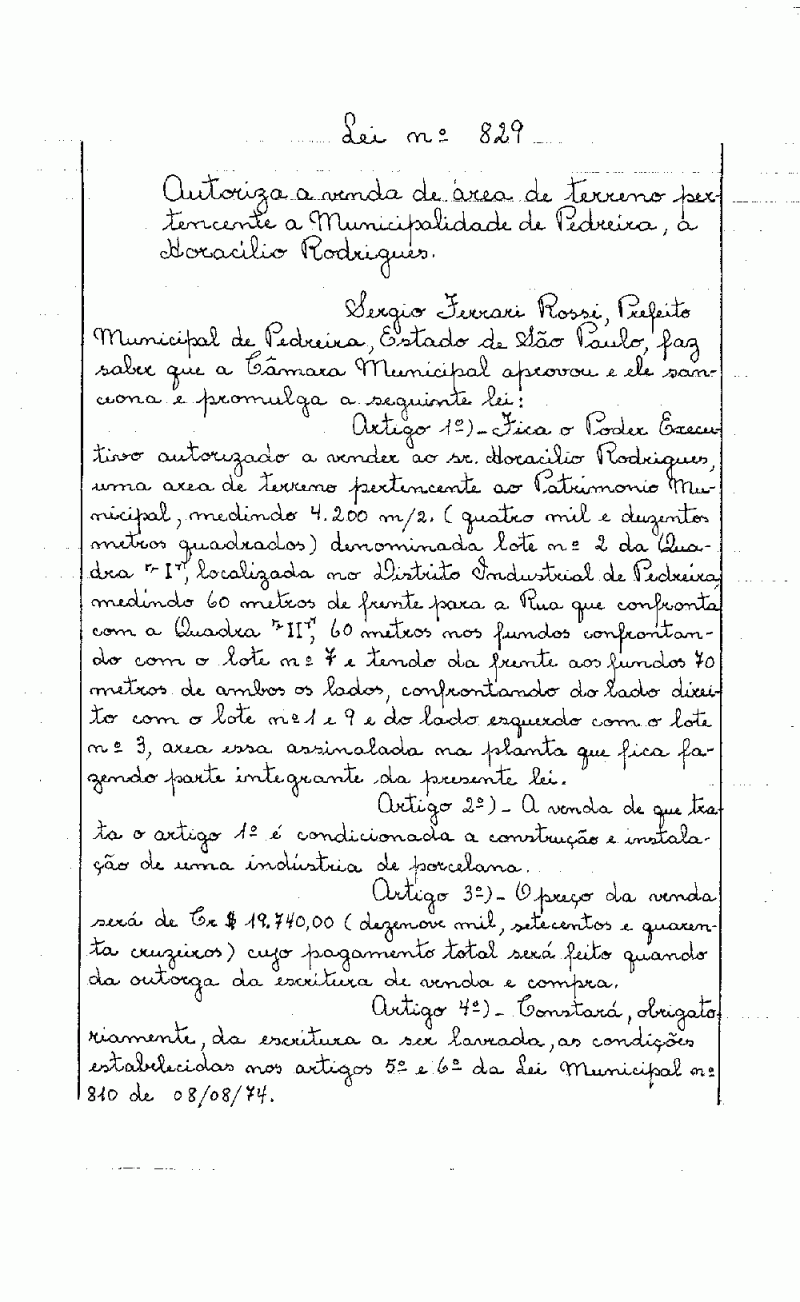 Lei nº 829
Autoriza a venda de área de terreno per-
tencente a Municipalidade de Pedreira, a
Horacílio Rodrigues.
Sergio Ferrari Rossi, Prefeito
Municipal de Pedreira, Estado de São Paulo, faz
saber que a Câmara Municipal aprovou e ele san-
ciona e promulga a seguinte lei:
Artigo 1º)- Fica o Poder Execu-
tivo autorizado a vender ao sr. Horacílio Rodrigues,
uma area de terreno pertencente ao Patrimonio Mu-
nicipal, medindo 4.200 m/2. (quatro mil e duzentos
metros quadrados) denominada lote nº 2 da Qua-
dra "I", localizada no Distrito Industrial de Pedreira,
medindo 60 metros de frente para a Rua que confronta
com a Quadra "II", 60 metros nos fundos confrontan-
do com o lote nº 7 e tendo da frente aos fundos 70
metros de ambos os lados, confrontando do lado direi-
to com o lote nº 1 e 9 e do lado esquerdo com o lote
nº 3, area essa assinalada na planta que fica fa-
zendo parte integrante da presente lei.
Artigo 2º)- A venda de que tra-
ta o artigo 1º é condicionada a construção e instala-
ção de uma indústria de porcelana.
Artigo 3º)- O preço da venda
será de Cr$ 19.740,00 (dezenove mil, setecentos e quaren-
ta cruzeiros) cujo pagamento total será feito quando
da outorga da escritura de venda e compra.
Artigo 4º)- Constará, obrigato-
riamente, da escritura a ser lavrada, as condições
estabelecidas nos artigos 5º e 6º da Lei Municipal nº
810 de 08/08/74.